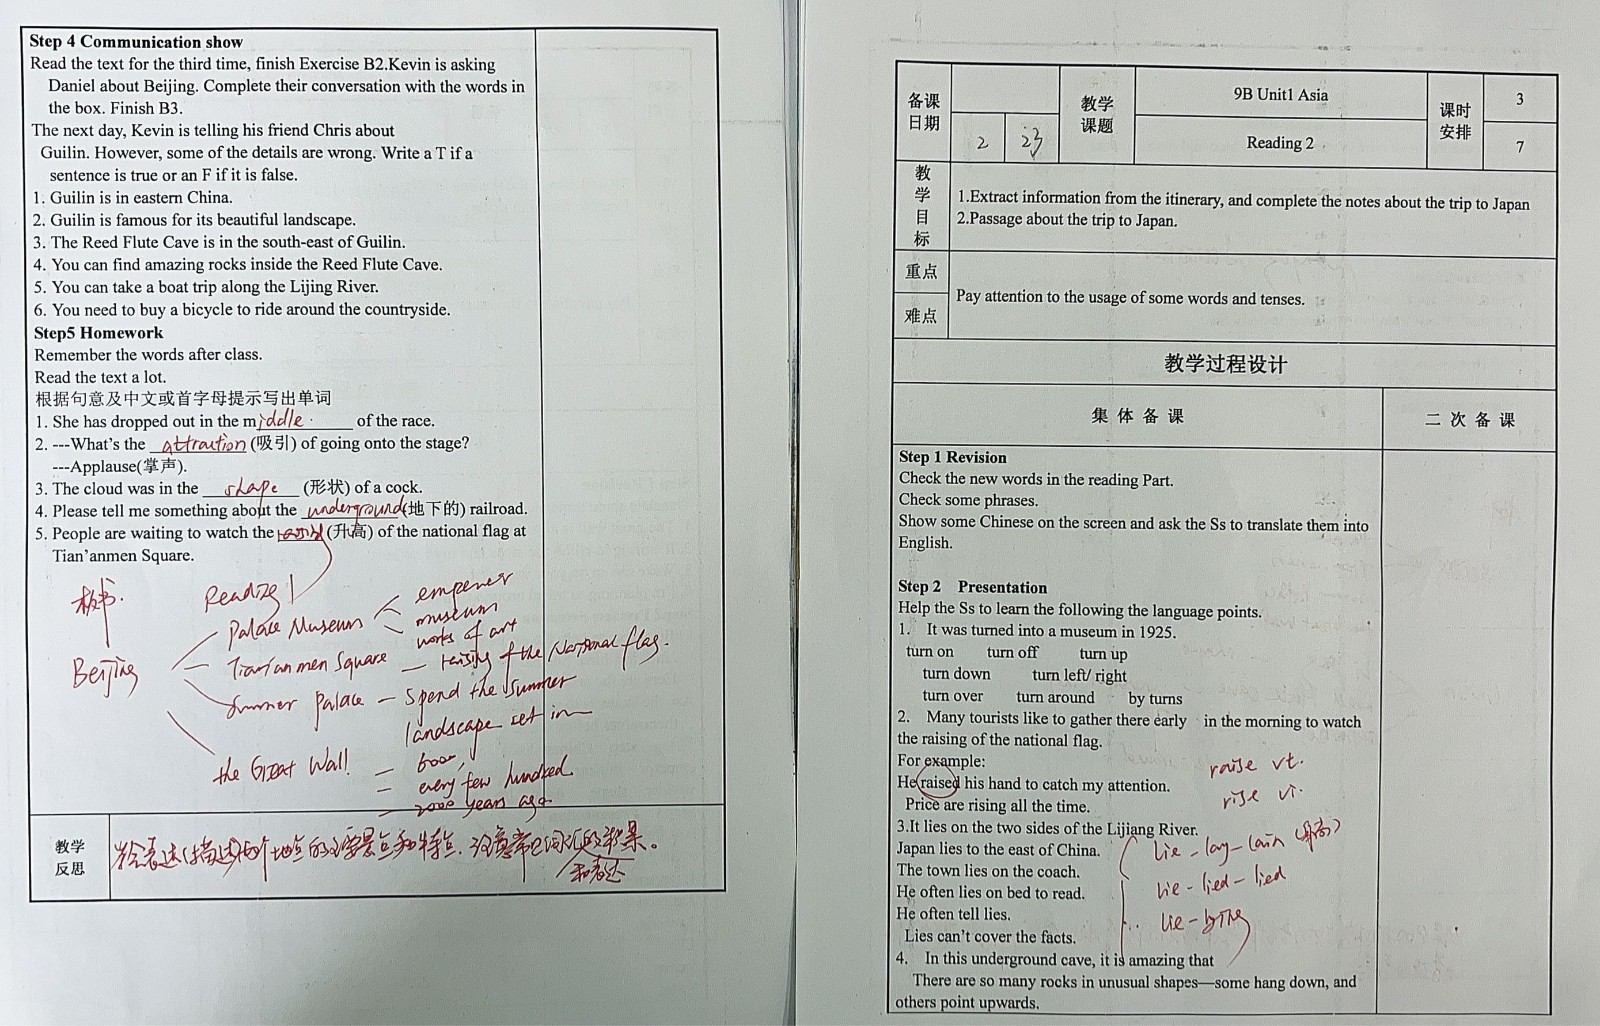 Step 4 Communication show
Read the text for the third time, finish Exercise B2.Kevin is asking
Daniel about Beijing. Complete their conversation with the words in
the box. Finish B3.
The next day, Kevin is telling his friend Chris about
Guilin. However, some of the details are wrong. Write a T if a
sentence is true or an F if it is false.
1. Guilin is in eastern China.
2. Guilin is famous for its beautiful landscape.
3. The Reed Flute Cave is in the south-east of Guilin.
4. You can find amazing rocks inside the Reed Flute Cave.
5. You can take a boat trip along the Lijing River.
6. You need to buy a bicycle to ride around the countryside.
Step5 Homework
Remember the words after class.
Read the text a lot.
根据句意及中文或首字母提示写出单词
1. She has dropped out in the middle of the race.
2. ---What's the attraction (吸引) of going onto the stage?
---Applause(掌声).
3. The cloud was in the shape (形状) of a cock.
4. Please tell me something about the underground(地下的) railroad.
5. People are waiting to watch the raising (升高) of the national flag at
Tian'anmen Square.
板书.
Reading 1
Beijing
Palace Museum
emperor
museum
works of art
Tian'anmen Square — raising of the National flag.
Summer Palace — spend the summer
landscape set in
the Great Wall
every few hundred
2000 years ago
教学
反思
和表达
备课
日期
2
教学
课题
9B Unit1 Asia
Reading 2
课时
安排
3
7
教
学
目
标
1.Extract information from the itinerary, and complete the notes about the trip to Japan
2.Passage about the trip to Japan.
重点
难点
Pay attention to the usage of some words and tenses.
教学过程设计
集 体 备 课
二 次 备 课
Step 1 Revision
Check the new words in the reading Part.
Check some phrases.
Show some Chinese on the screen and ask the Ss to translate them into
English.
Step 2 Presentation
Help the Ss to learn the following the language points.
1. It was turned into a museum in 1925.
turn on turn off turn up
turn down turn left/ right
turn over turn around by turns
2. Many tourists like to gather there early in the morning to watch
the raising of the national flag.
For example:
He raised his hand to catch my attention.
raise vt.
Price are rising all the time.
rise vi.
3.It lies on the two sides of the Lijiang River.
Japan lies to the east of China.
lie - lay - lain
The town lies on the coach.
lie - lied - lied
He often lies on bed to read.
He often tell lies.
lie - lying
Lies can't cover the facts.
4. In this underground cave, it is amazing that
There are so many rocks in unusual shapes—some hang down, and
others point upwards.